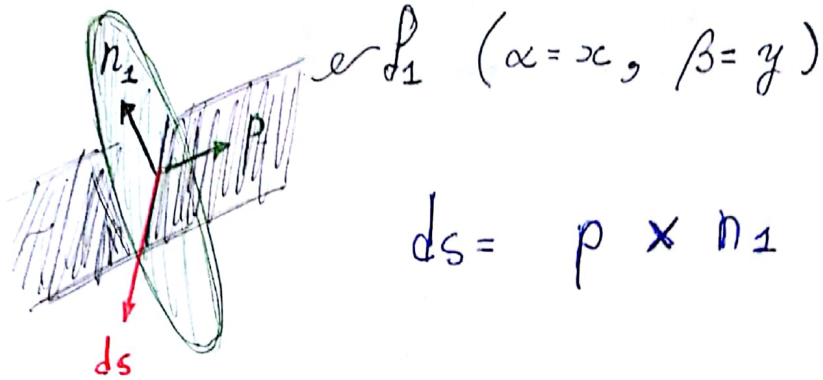 n1
p
ds
P1 (α = x, β = y)
ds = p × n1